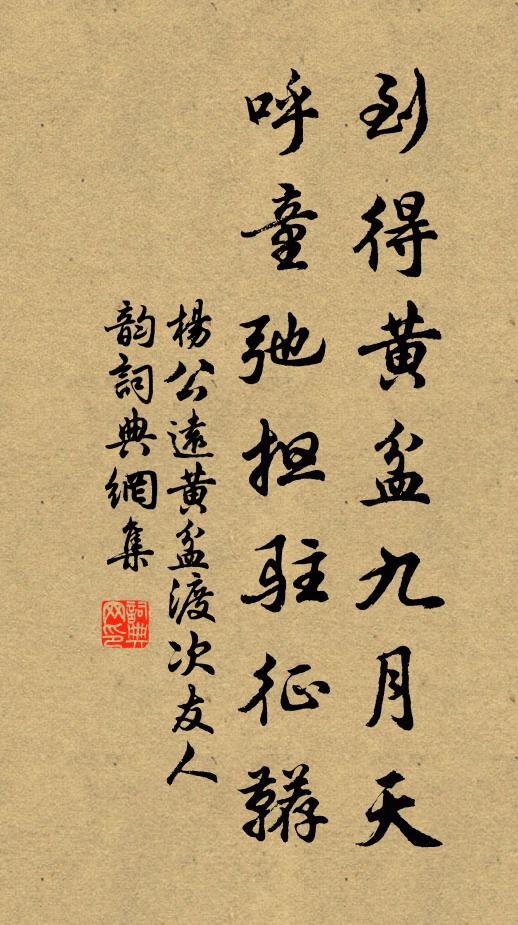 到得黃盆九月天
呼童弛担駐征韉
楊公遠黃盆渡次友人
韵詞典網集
詞典
网印